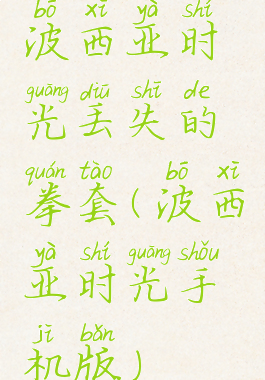 bō xī yà shí
波西亚时
guāng diū shī de
光丢失的
quán tào bō xī
拳套(波西
yà shí guāng shǒu
亚时光手
jī bǎn
机版)